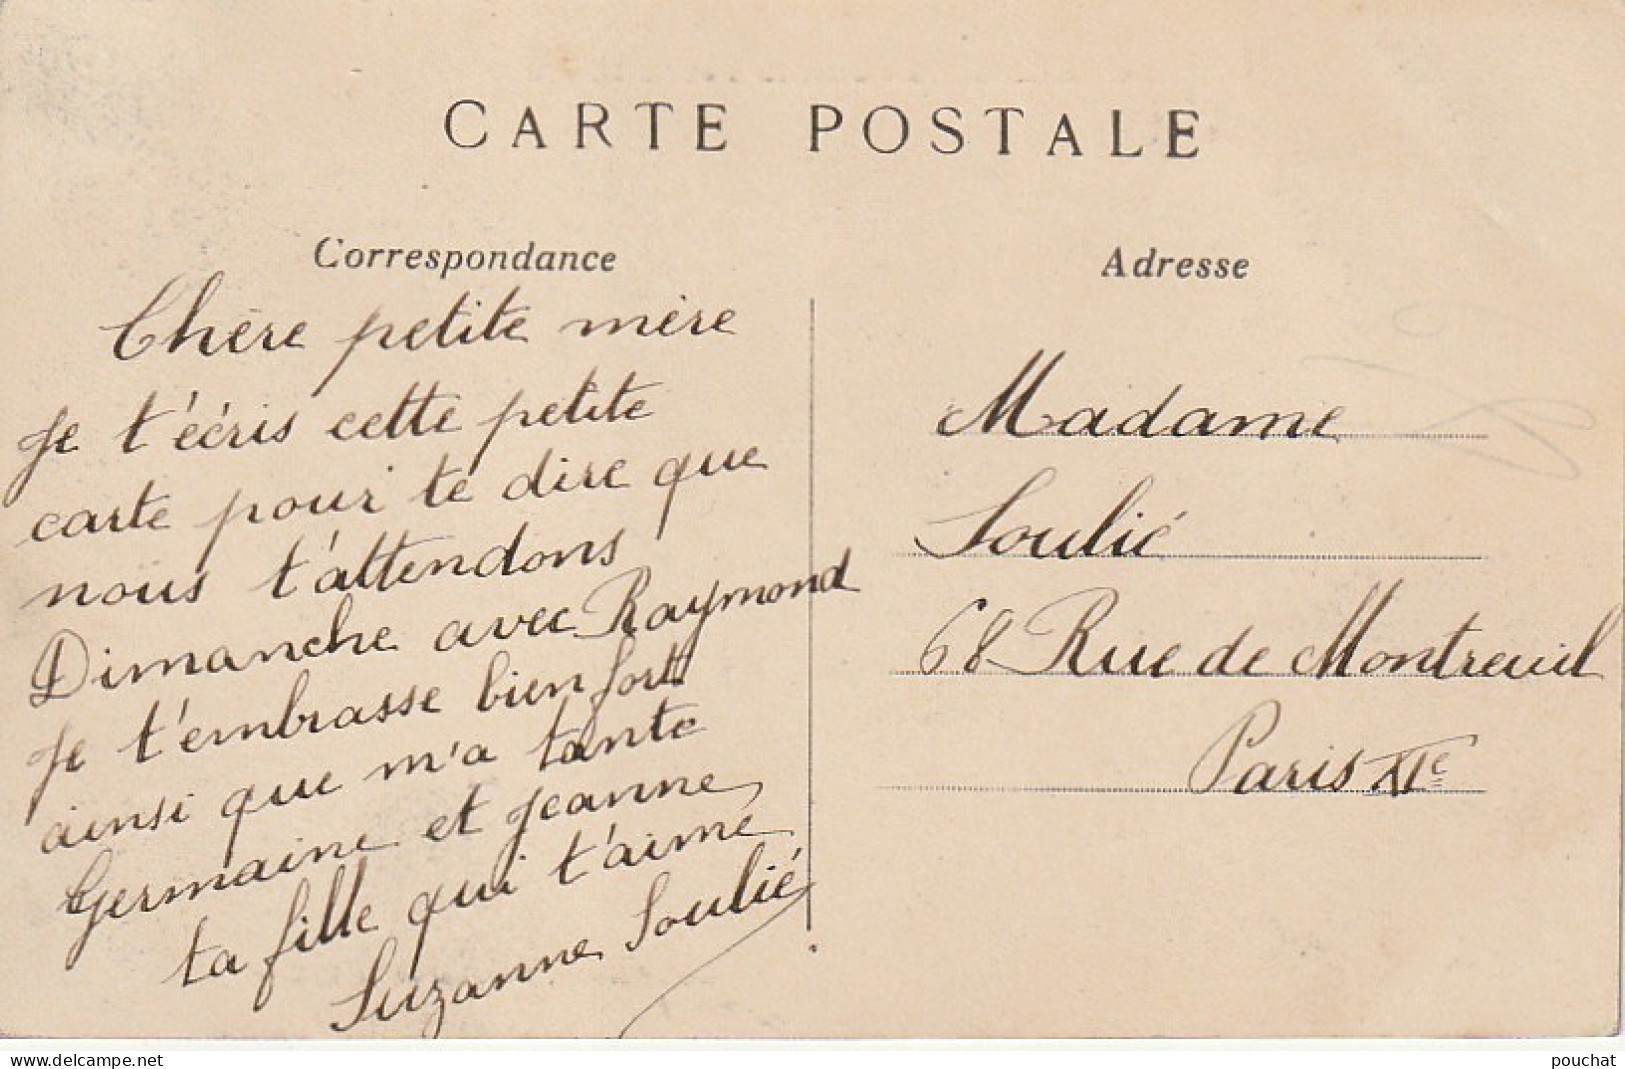 CARTE POSTALE
Correspondance
Chère petite mère
Je t'écris cette petite
carte pour te dire que
nous t'attendons
Dimanche avec Raymond
Je t'embrasse bien fort
ainsi que m'a tante
Germaine et Jeanne,
ta fille qui t'aime
Suzanne Soulié
Adresse
Madame
Soulié
68 Rue de Montreuil
Paris XIe
www.delcampe.net
pouchat